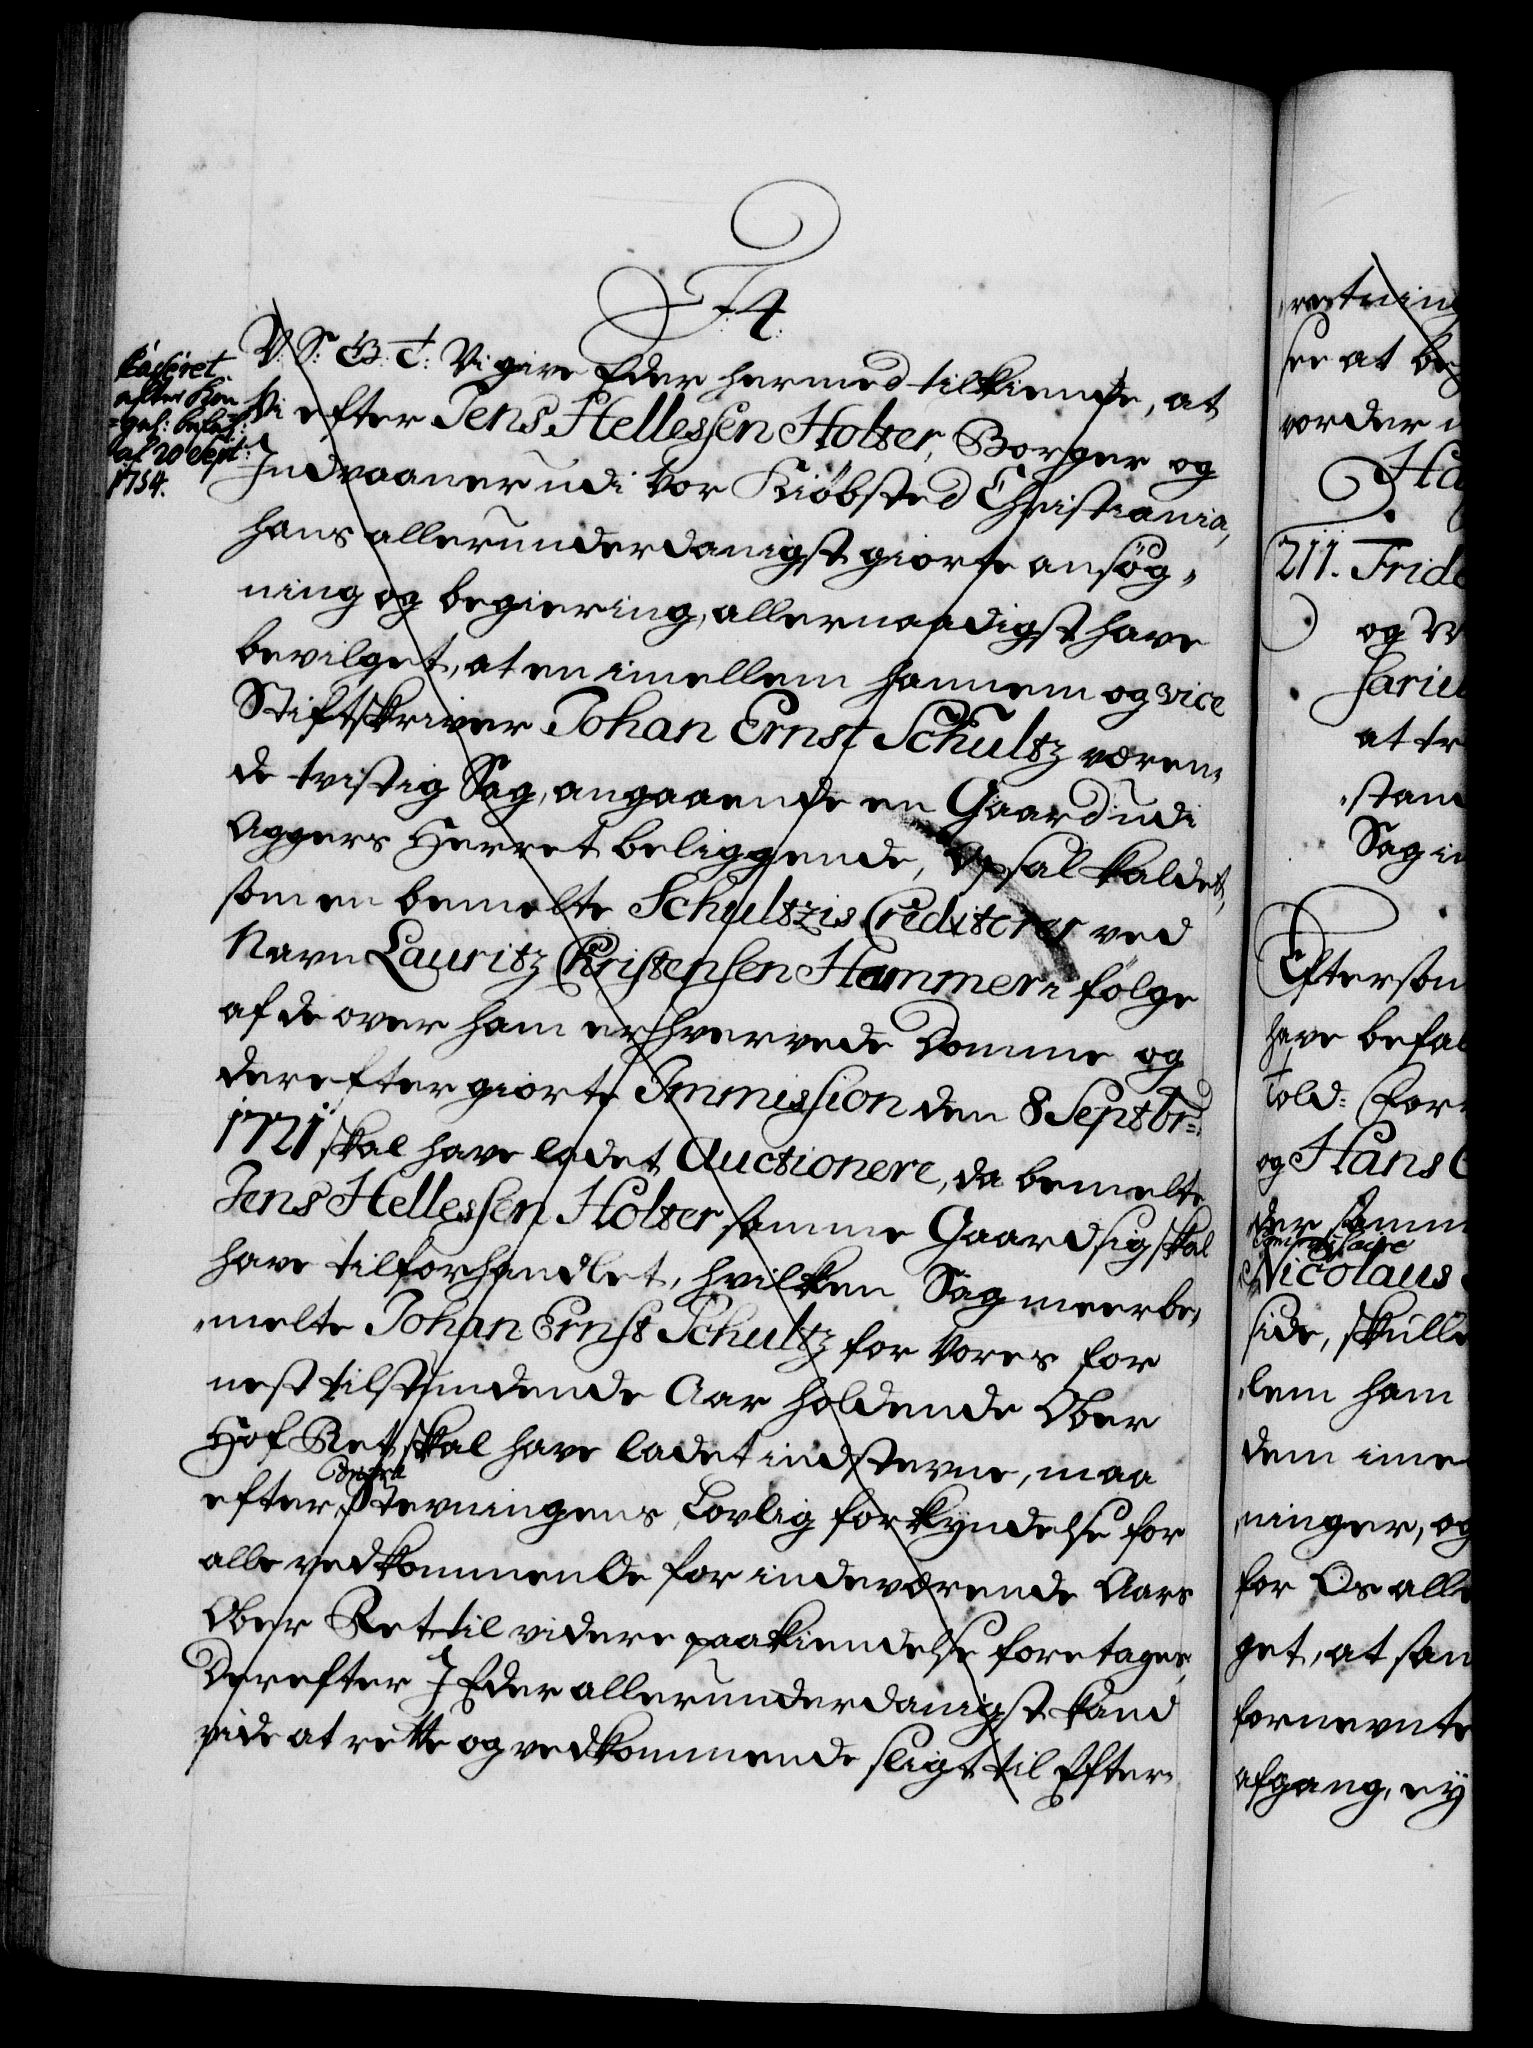 F:4.
V: S: G: T: Vi give Eder hermed tilkiende, at
Vi efter Jens Hellessen Holter, Borger og
Indvaaner udi Vor Kiøbsted Christiania,
hans allerunderdanigst giorte ansøg-
ning og begiering, allernaadigst have
bevilget, at en imellem hannem og vice
Stiftskriver Johan Ernst Schultz væren-
de tvistig Sag, angaaende en Gaard udi
Aggers Herret beliggende, Opsal kaldet,
som en bemelte Schultzis Creditorer ved
Navn Lauritz Christensen Hammer i følge
af de over ham erhvervede Domme og
derefter giorte Immission den 8 Septbr:
1721 skal have ladet Auctionere, da bemelte
Jens Hellessen Holter samme Gaard sig skal
have tilforhandlet, hvilken Sag meerbe-
melte Johan Ernst Schultz for Vores for
nest tilstundende Aar holdende Ober
Hof Ret skal have ladet indstevne, maa
efter Contra Stevningens Lovlig forkyndelse for
alle vedkommende for indeværende Aars
Ober Ret til videre paakiendelse foretages,
Derefter I Eder allerunderdanigst kand
vide at rette og vedkommende sligt til Efter-
Casseret
efter Kon-
gel: befal:
af 20 Sept:
1734.
retning
see at beg
vorder
Ha
211. Fride
og
sariu
at tr
stam
Sag in
Eftersom
have befal
Told: For
og Hans
der samm
Commissaire
Nicolaus
side, skulle
lem ham
dem ime
ninger, og
for Os alle
get, at sam
fornevnte
afgang, ey